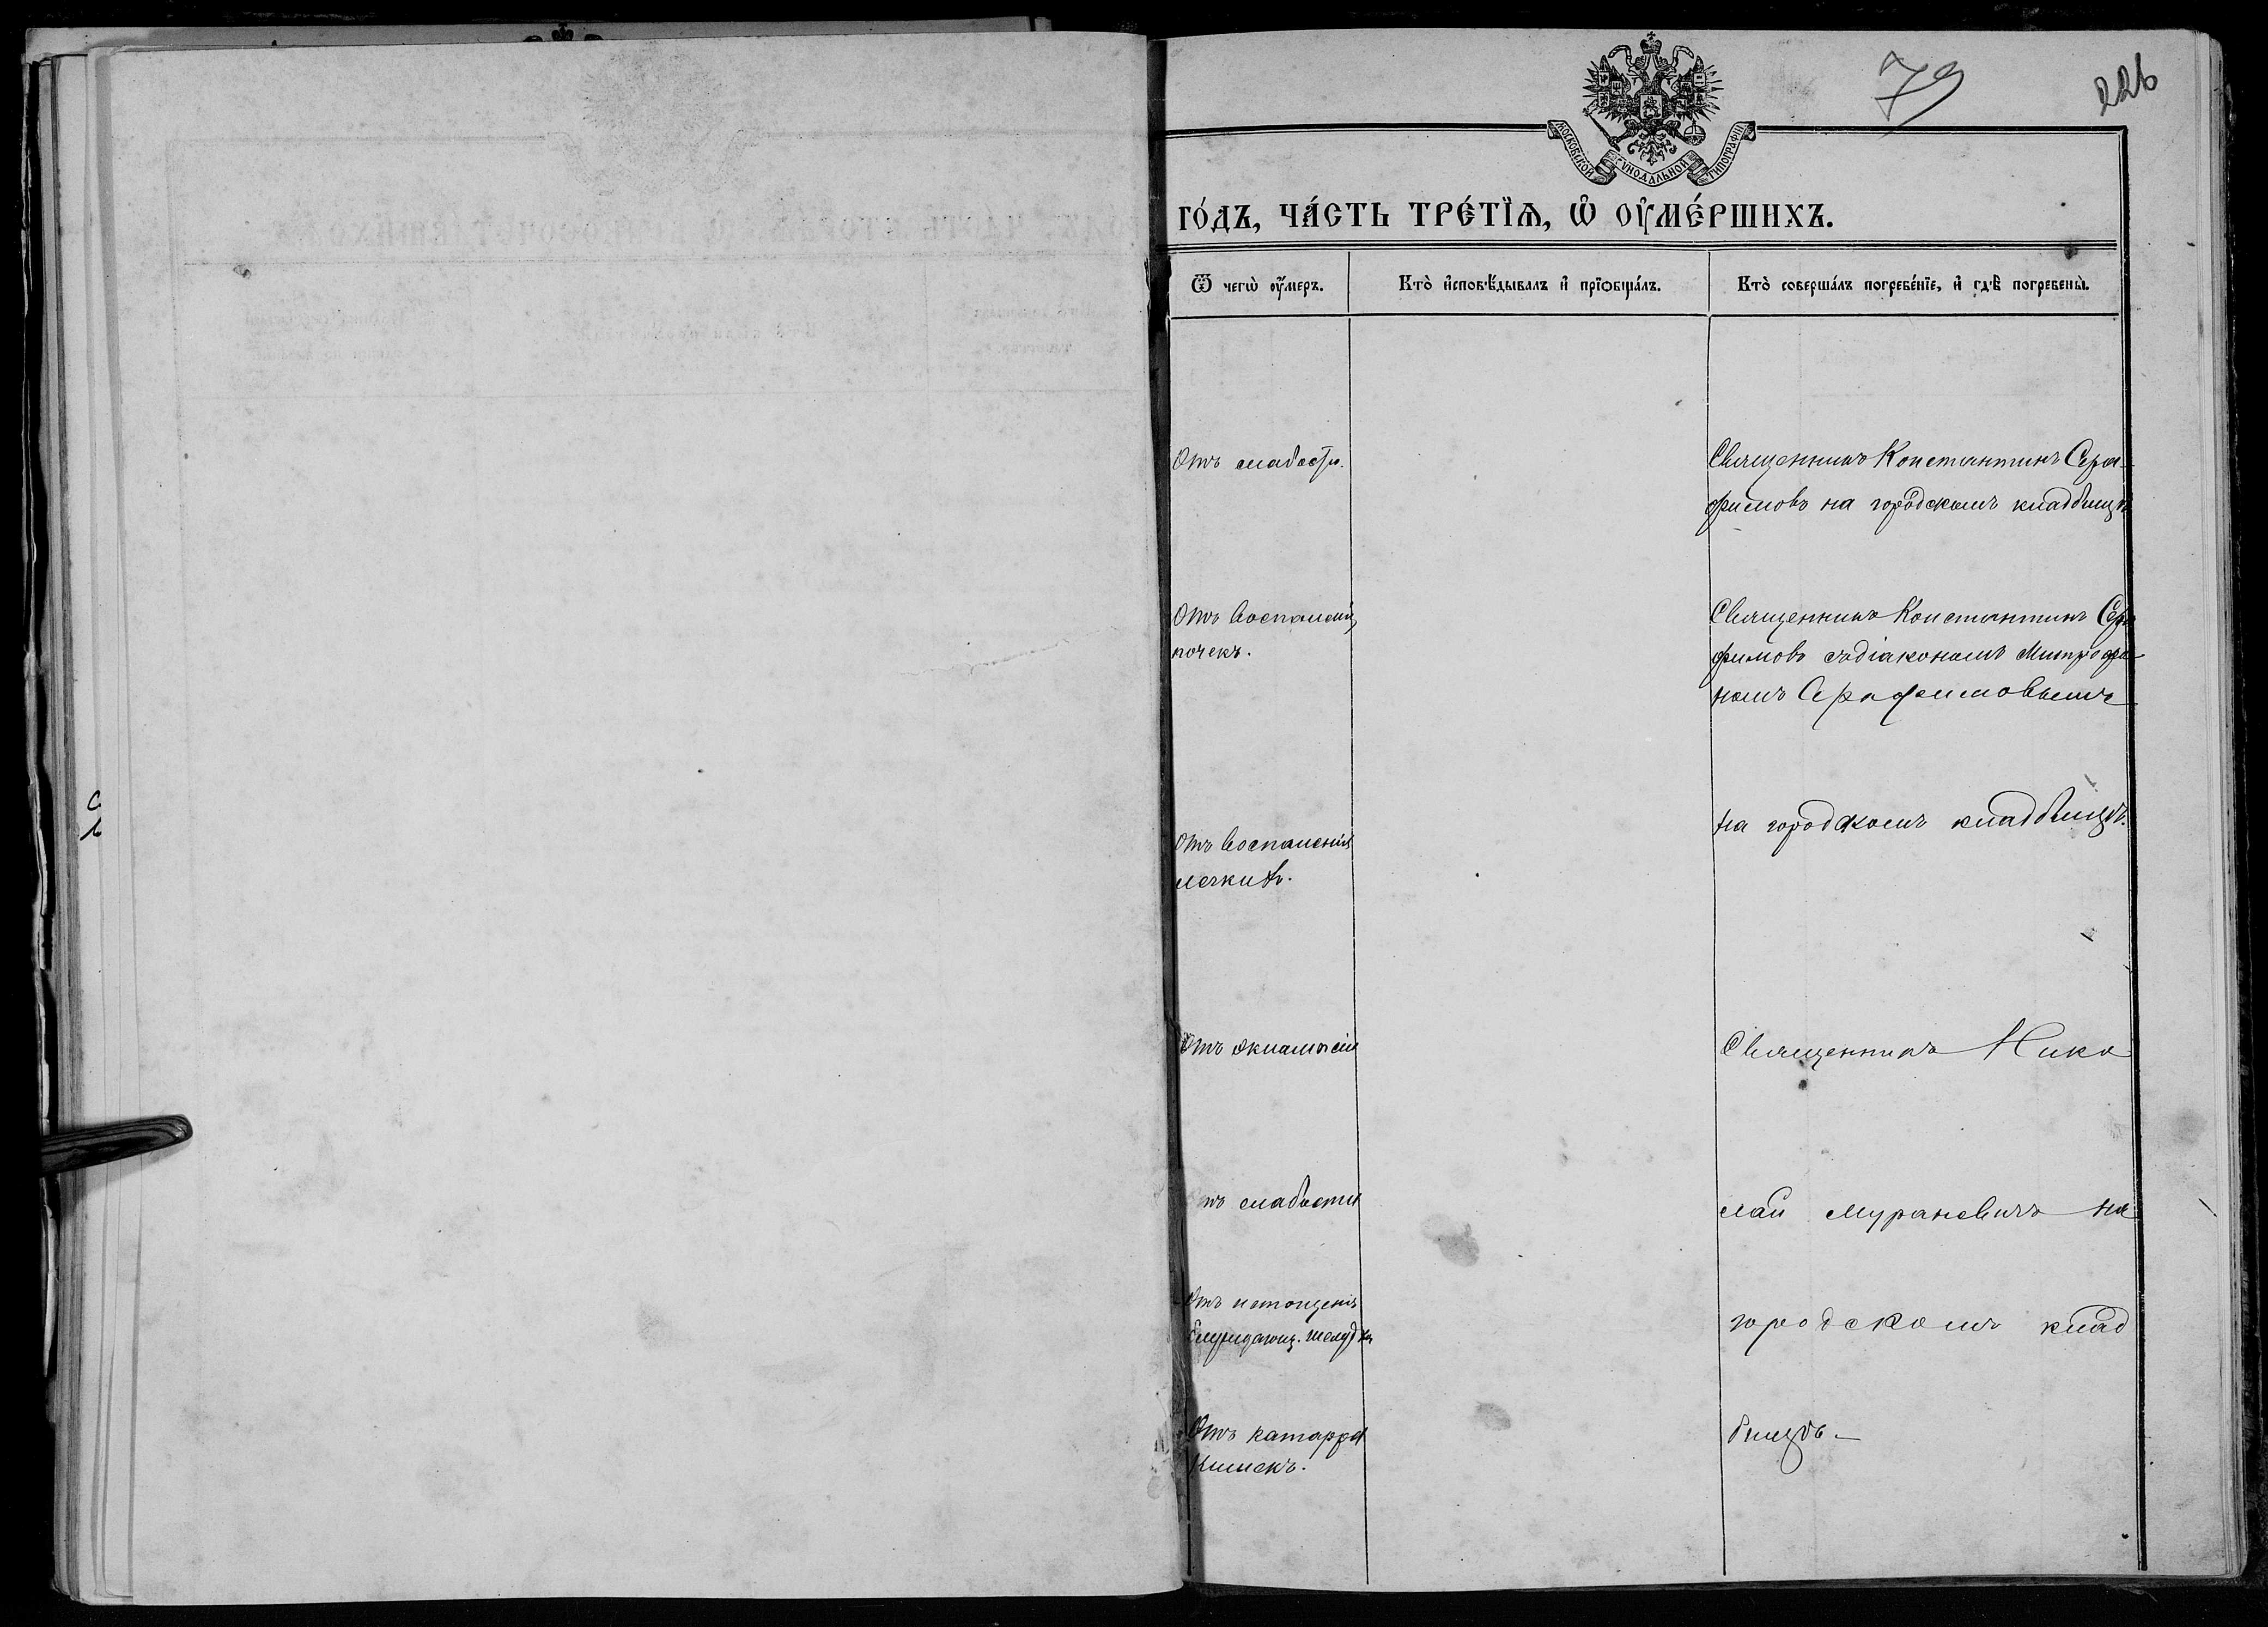 79
226
МОСКОВСКОЙ СѴНОДАЛЬНОЙ ТИПОГРАФІИ
ГО́ДЪ, ЧА́СТЬ ТРЕ́ТЇѦ, Ѡ҆ ОУ҆МЕ́РШИХЪ.
Ѿ чегѡ̀ оу҆́меръ.
Кто̀ и҆сповѣ́дывалъ и҆ прїѡбща́лъ.
Кто̀ соверша́лъ погребе́нїе, и҆ гдѣ̀ погребены̀.
Отъ слабости.
Священникъ Константинъ Сера-
фимовъ на городскомъ кладбищѣ
Отъ воспаленія
почекъ.
Священникъ Константинъ Сера
фимовъ съ діакономъ Митрофа-
номъ Серафимовымъ
на городскомъ кладбищѣ.
Отъ воспаленія
легкихъ.
Отъ эклампсіи
Священникъ Нико
тъ слабости
лай Мураневичъ на
Отъ истощенія
желудка
городскомъ клад
Отъ катарра
кишекъ.
бищѣ-